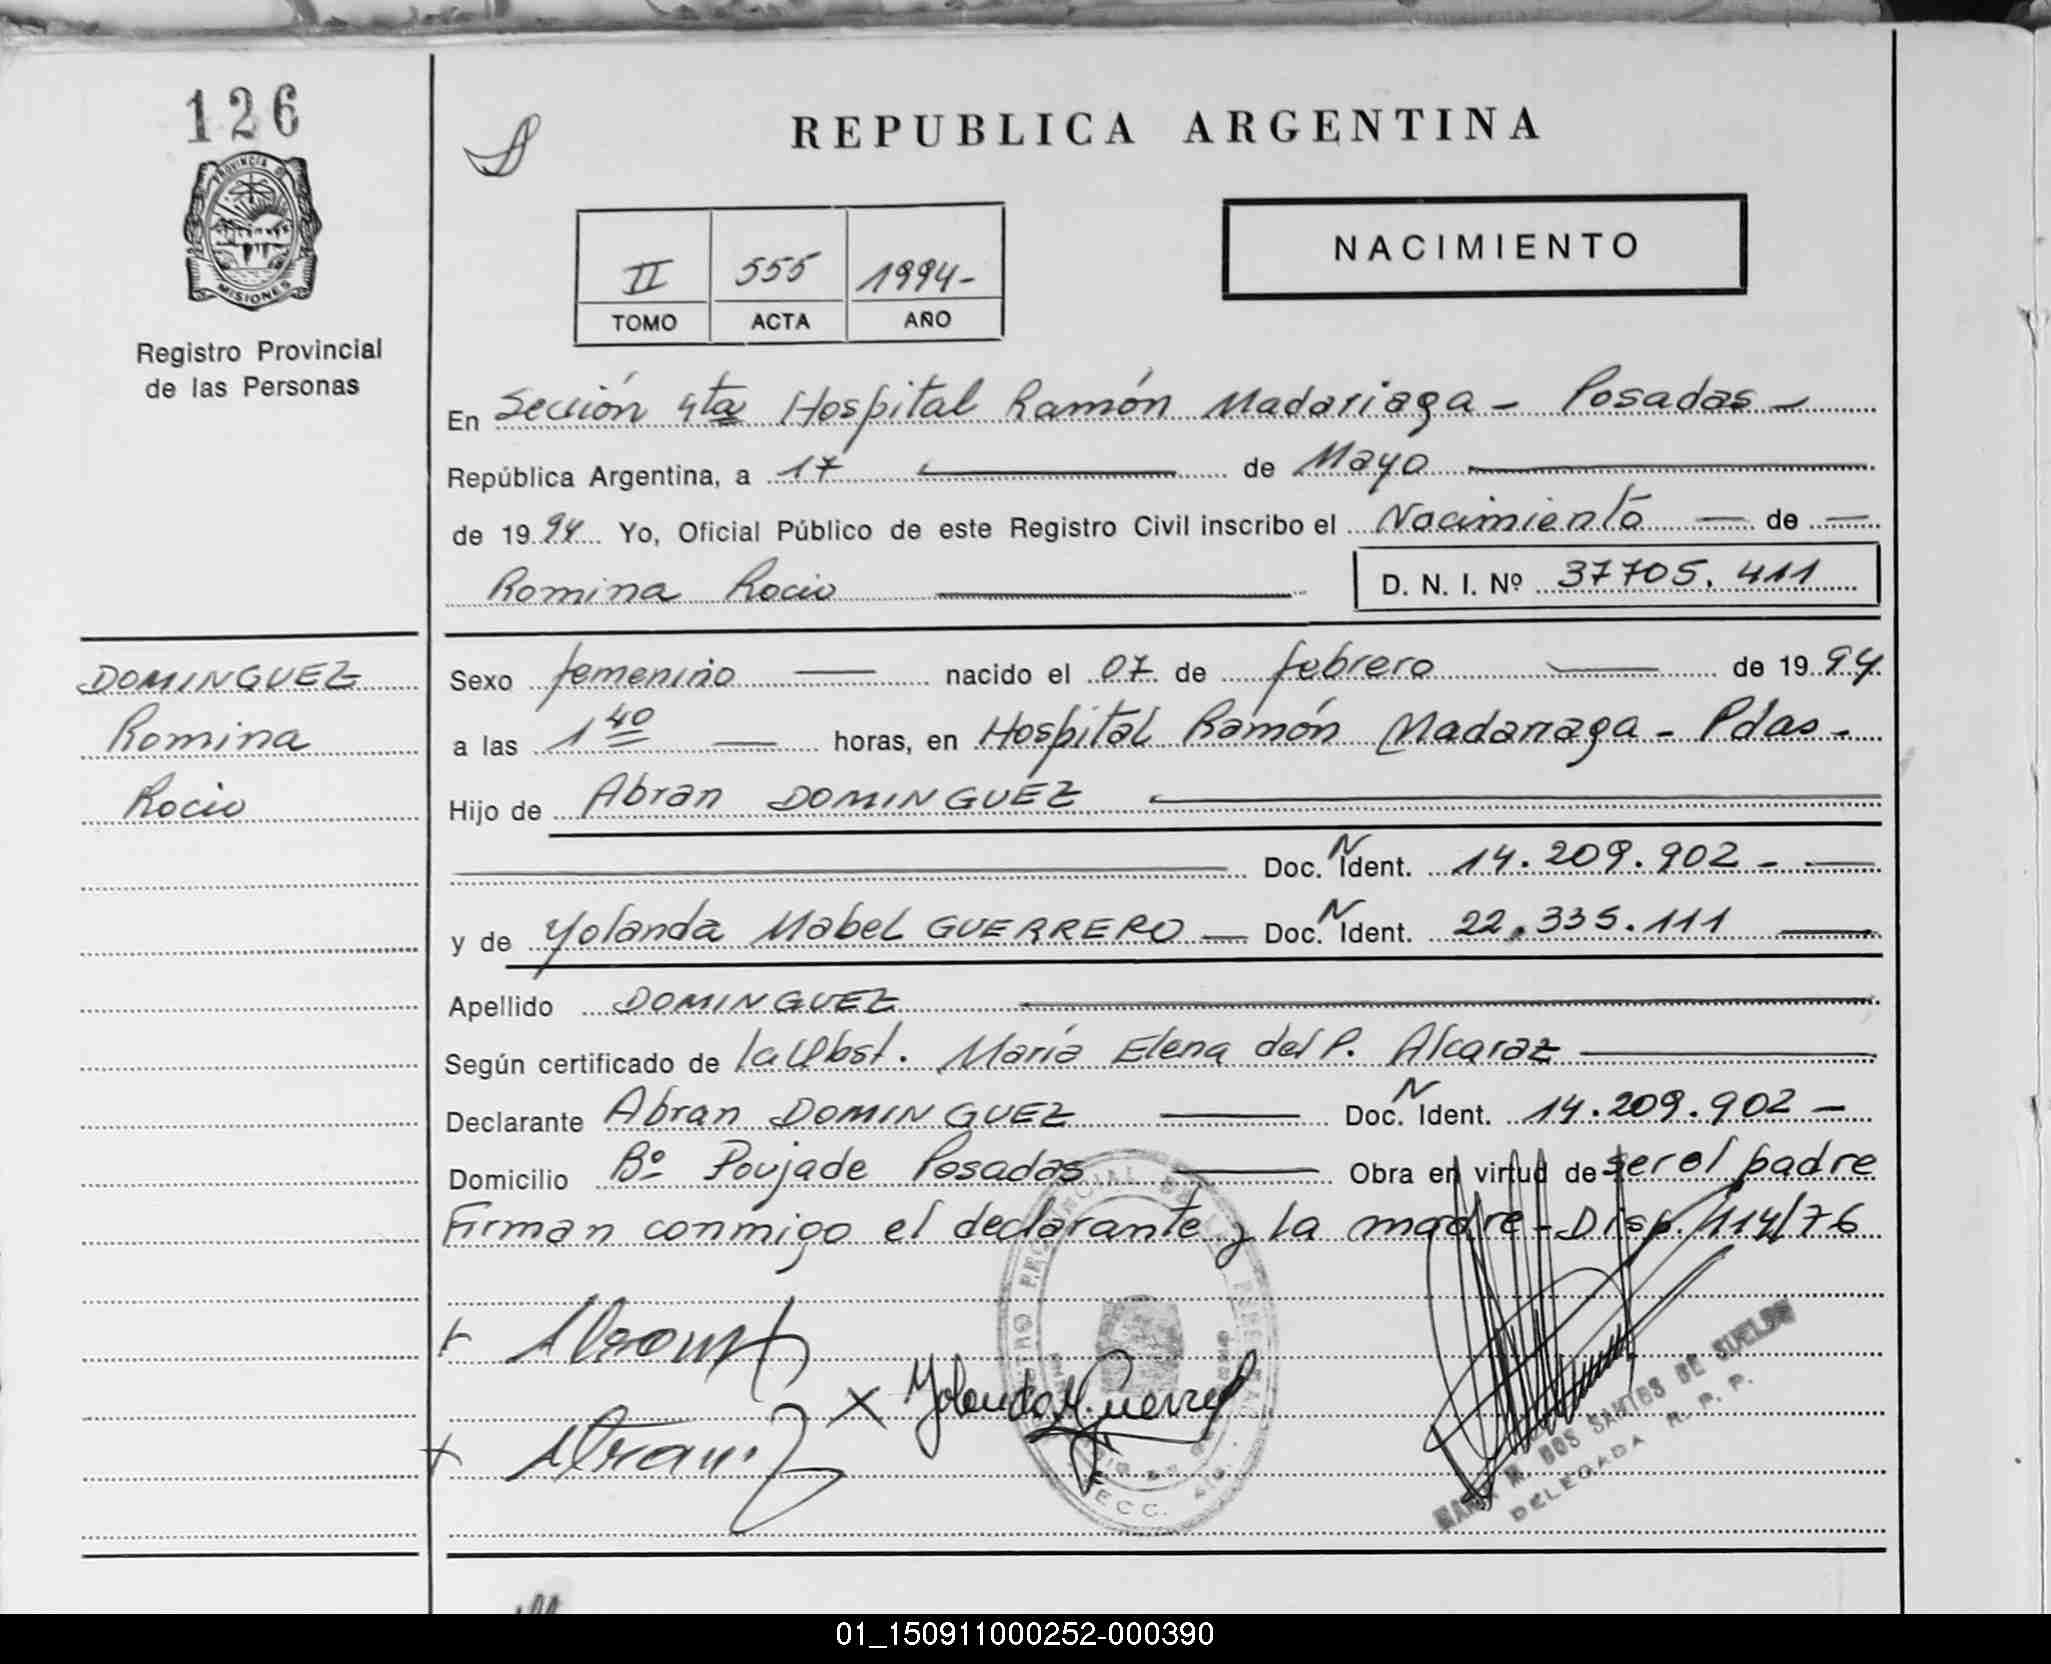 126
PROVINCIA DE
MISIONES
Registro Provincial
de las Personas
REPUBLICA ARGENTINA
NACIMIENTO
II 555 1994-
TOMO ACTA AÑO
En Sección 4ta Hospital Ramón Madariaga - Posadas -
República Argentina, a 17 de Mayo
de 1994 Yo, Oficial Público de este Registro Civil inscribo el Nacimiento de
Romina Rocio D. N. I. Nº 37705.411
DOMINGUEZ
Romina
Rocio
Sexo femenino nacido el 07 de febrero de 1994.
a las 1 40 horas, en Hospital Ramón Madariaga - Pdas -
Hijo de Abran DOMINGUEZ
Doc. N Ident. 14.209.902 -
y de Yolanda Mabel GUERRERO Doc. N Ident. 22.335.111
Apellido DOMINGUEZ
Según certificado de la Obst. María Elena del P. Alcaraz
Declarante Abran DOMINGUEZ Doc. N Ident. 14.209.902 -
Domicilio Bº Poujade Posadas Obra en virtud de ser el padre
Firman conmigo el declarante y la madre - Disp. 114/76
x Yolanda M. Guerrero
DOS SANTOS DE SUELDO
DELEGADA R. P. P.
01_150911000252-000390